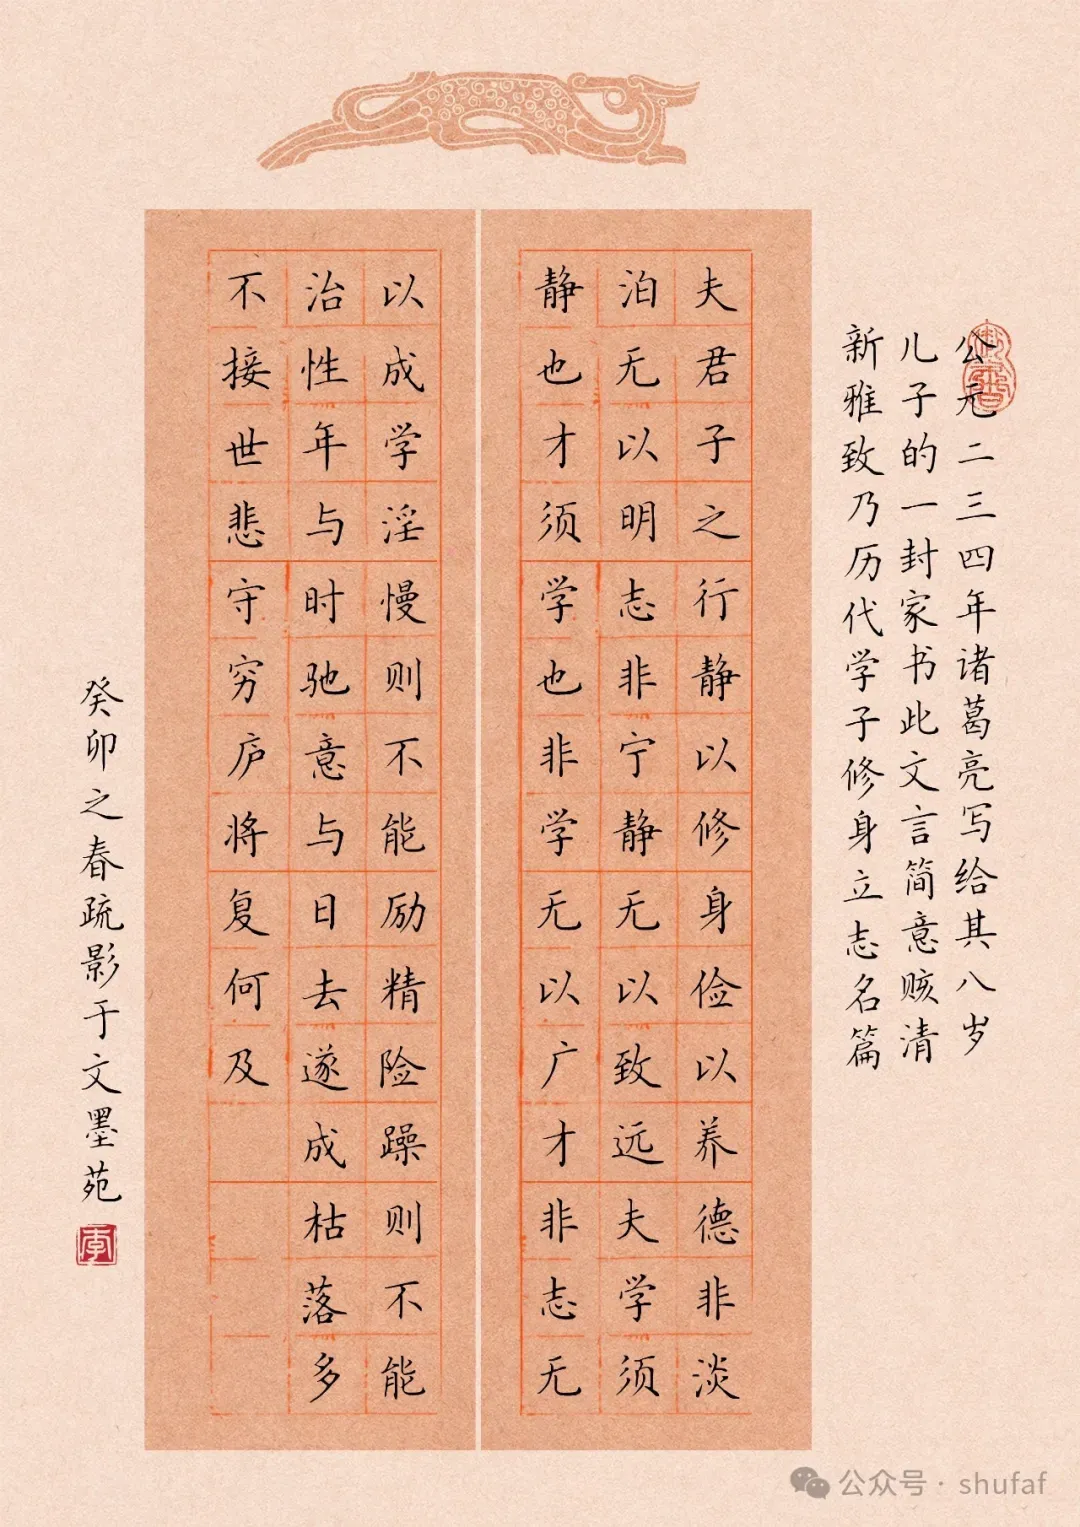 公元二三四年诸葛亮写给其八岁
儿子的一封家书此文言简意赅清
新雅致乃历代学子修身立志名篇
夫君子之行静以修身俭以养德非淡
泊无以明志非宁静无以致远夫学须
静也才须学也非学无以广才非志无
以成学淫慢则不能励精险躁则不能
治性年与时驰意与日去遂成枯落多
不接世悲守穷庐将复何及
癸卯之春疏影于文墨苑
李
公众号·shufaf